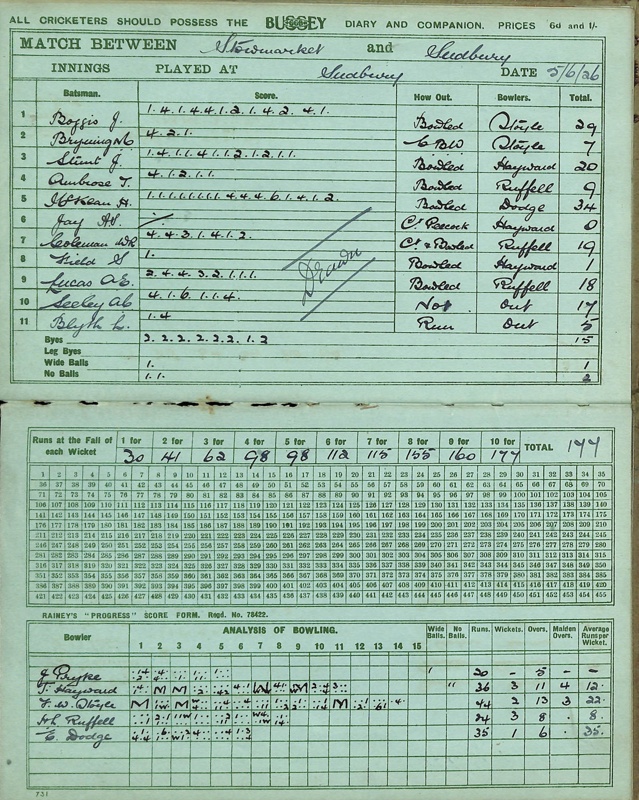 ALL CRICKETERS SHOULD POSSESS THE BUSSEY DIARY AND COMPANION. PRICES 6d and 1/-
MATCH BETWEEN Stowmarket and Sudbury
INNINGS PLAYED AT Sudbury DATE 5/6/26
Batsman. Score. How Out. Bowlers. Total.
1 Boggis J. 1.4.1.4.4.1.2.1.4.2. 4.1. Bowled Stoyle 29
2 4.2.1. LBW Stoyle 7
3 Stunt J. 1.4.1.1.4.1.1.2.1.2.1.1. Bowled Hayward 20
4 Ambrose T. 4.1.2.1.1. Bowled Ruffell 9
5 McKean H. 1.1.1.1.1.1.1.1.4.4.4.6.1.4.1.2. Bowled Dodge 34
6 Jay A.S. Ct Peacock Hayward 0
7 Coleman W.R. 4.4.3.1.4.1.2. Ct & Bowled Ruffell 19
8 Field S 1. Bowled Hayward 1
9 Lucas A.E. 2.4.4.3.2.1.1.1. Bowled Ruffell 18
10 Seeley A.C 4.1.6.1.1.4. Not out 17
11 Blyth L. 1.4 Run Out 5
Drawn
Byes 2.2.2.2.2.2.1.2 15
Leg Byes
Wide Balls 1. 1
No Balls 1.1. 2
Runs at the Fall of each Wicket 1 for 2 for 3 for 4 for 5 for 6 for 7 for 8 for 9 for 10 for TOTAL 177
30 41 62 98 98 112 115 155 160 177
1 2 3 4 5 6 7 8 9 10 11 12 13 14 15 16 17 18 19 20 21 22 23 24 25 26 27 28 29 30 31 32 33 34 35
36 37 38 39 40 41 42 43 44 45 46 47 48 49 50 51 52 53 54 55 56 57 58 59 60 61 62 63 64 65 66 67 68 69 70
71 72 73 74 75 76 77 78 79 80 81 82 83 84 85 86 87 88 89 90 91 92 93 94 95 96 97 98 99 100 101 102 103 104 105
106 107 108 109 110 111 112 113 114 115 116 117 118 119 120 121 122 123 124 125 126 127 128 129 130 131 132 133 134 135 136 137 138 139 140
141 142 143 144 145 146 147 148 149 150 151 152 153 154 155 156 157 158 159 160 161 162 163 164 165 166 167 168 169 170 171 172 173 174 175
176 177 178 179 180 181 182 183 184 185 186 187 188 189 190 191 192 193 194 195 196 197 198 199 200 201 202 203 204 205 206 207 208 209 210
211 212 213 214 215 216 217 218 219 220 221 222 223 224 225 226 227 228 229 230 231 232 233 234 235 236 237 238 239 240 241 242 243 244 245
246 247 248 249 250 251 252 253 254 255 256 257 258 259 260 261 262 263 264 265 266 267 268 269 270 271 272 273 274 275 276 277 278 279 280
281 282 283 284 285 286 287 288 289 290 291 292 293 294 295 296 297 298 299 300 301 302 303 304 305 306 307 308 309 310 311 312 313 314 315
316 317 318 319 320 321 322 323 324 325 326 327 328 329 330 331 332 333 334 335 336 337 338 339 340 341 342 343 344 345 346 347 348 349 350
351 352 353 354 355 356 357 358 359 360 361 362 363 364 365 366 367 368 369 370 371 372 373 374 375 376 377 378 379 380 381 382 383 384 385
386 387 388 389 390 391 392 393 394 395 396 397 398 399 400 401 402 403 404 405 406 407 408 409 410 411 412 413 414 415 416 417 418 419 420
421 422 423 424 425 426 427 428 429 430 431 432 433 434 435 436 437 438 439 440 441 442 443 444 445 446 447 448 449 450 451 452 453 454 455
RAINEY'S "PROGRESS" SCORE FORM. Regd. No. 78422.
Bowler ANALYSIS OF BOWLING. Wide Balls. No Balls. Runs. Wickets. Overs. Maiden Overs. Average Runs per Wicket.
1 2 3 4 5 6 7 8 9 10 11 12 13 14 15
J Pryke 20 - 5 - -
T. Hayward M M M 36 3 11 4 12
F. W. Stoyle M M M 44 2 13 3 22
Ruffell 24 3 8 . 8
E. Dodge 35 1 6 . 35
731